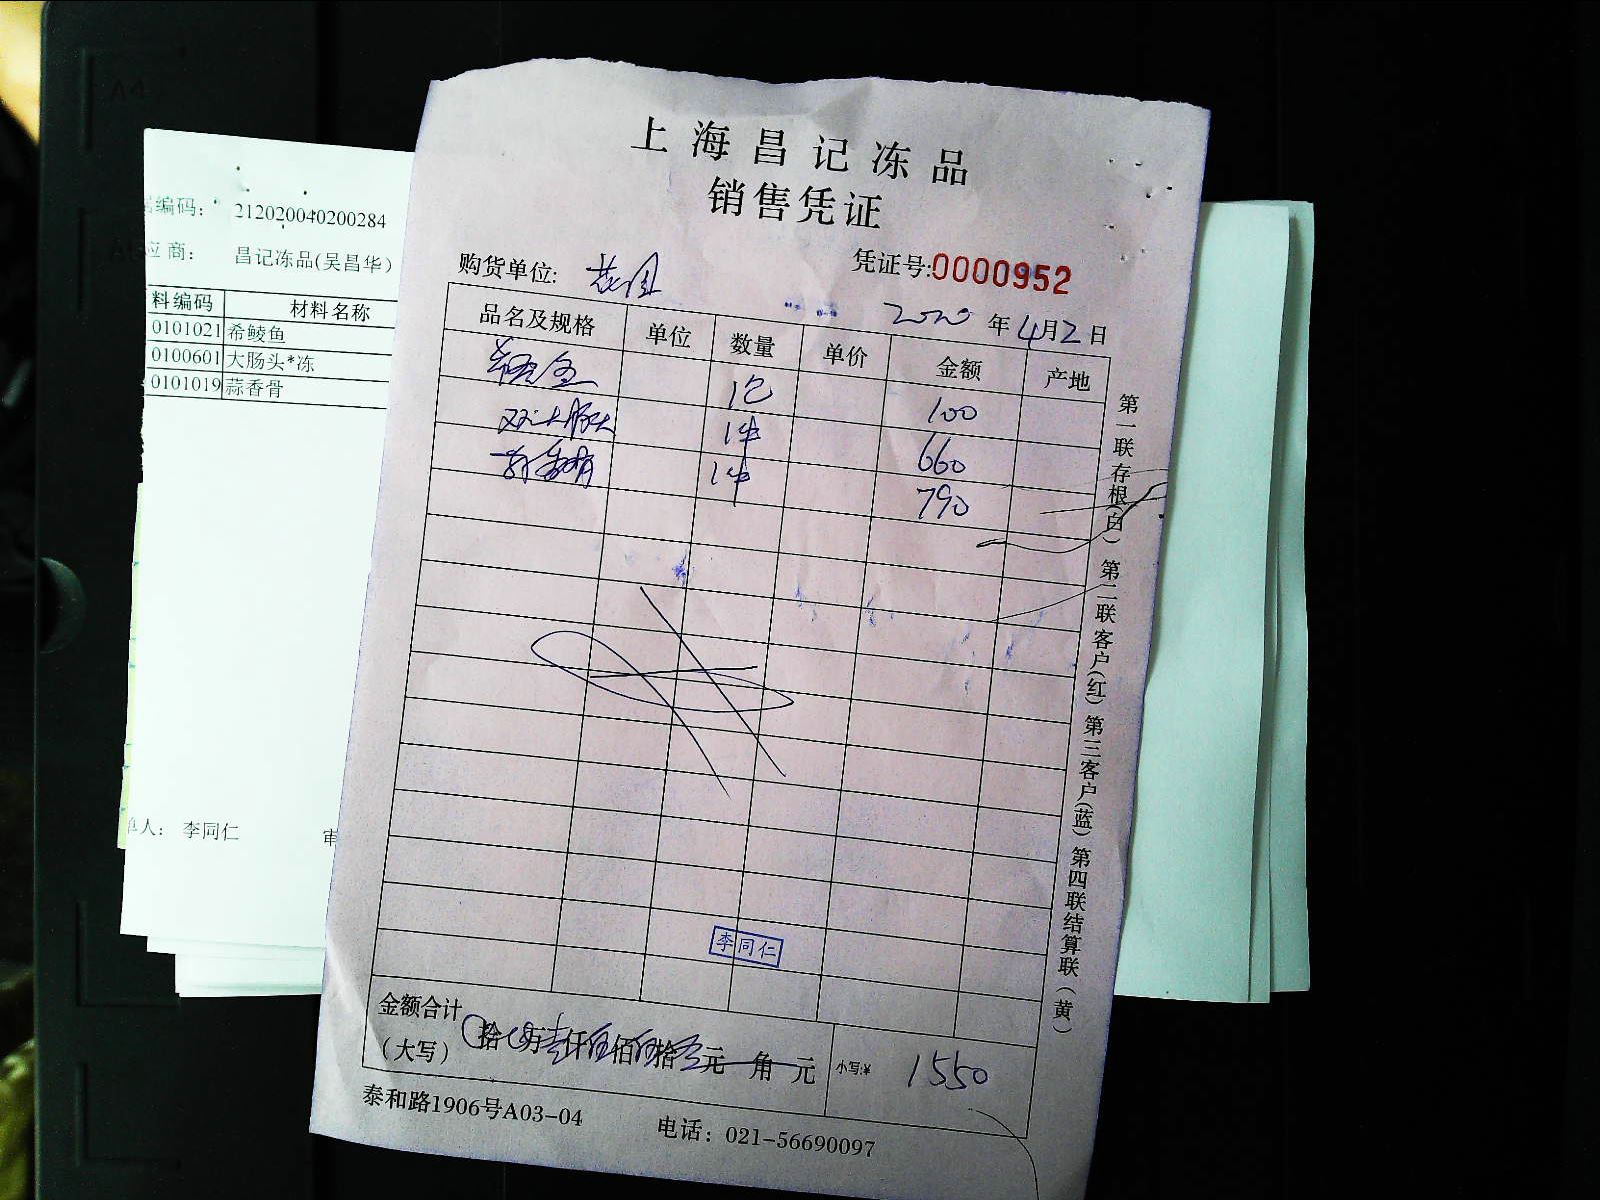 上海昌记冻品
销售凭证
购货单位:
凭证号:0000952
2020 年 4月2日
品名及规格 单位 数量 单价 金额 产地
1包 100
双汇大肠头 1件 660
蒜香骨 1件 790
李同仁
金额合计
(大写) 拾 万壹仟伍佰伍拾 元 角 元 小写:¥ 1550
泰和路1906号A03-04 电话: 021-56690097
第一联存根(白) 第二联客户(红) 第三客户(蓝) 第四联结算联(黄)
编码: 212020040200284
应商: 昌记冻品(吴昌华)
料编码 材料名称
0101021 希鲮鱼
0100601 大肠头*冻
0101019 蒜香骨
单人: 李同仁 审
A4